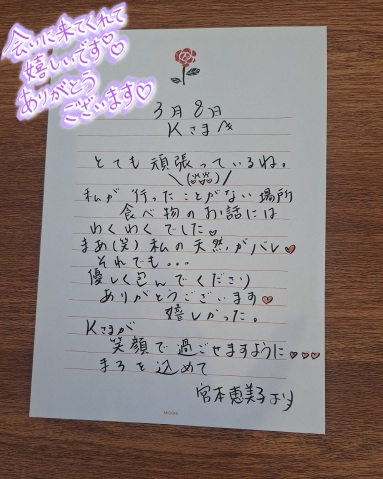 会いに来てくれて
嬉しいです♡♡
ありがとう
ございます♡
3月8日
Kさまへ
とても頑張っているね。
私が行ったことがない場所
食べ物のお話には
わくわくでした♡
まあ(笑)私の天然がバレ♥
それでも。。。
優しく包んでくださり
ありがとうございます♥
嬉しかった。
Kさまが
笑顔で過ごせますように♥♥♥
まるを込めて
宮本恵美子より